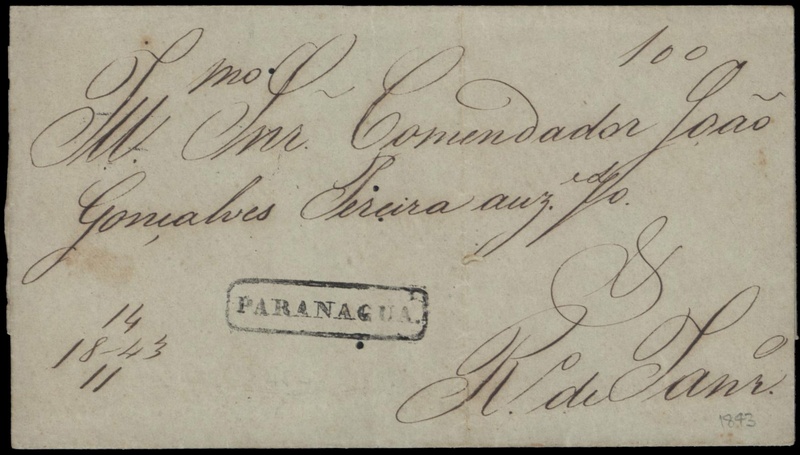 100
Ill.mo Snr. Comendador João
Gonçalves Pereira auz.
PARANAGUA.
14
18-43
11
R.o de Janr.o
1843